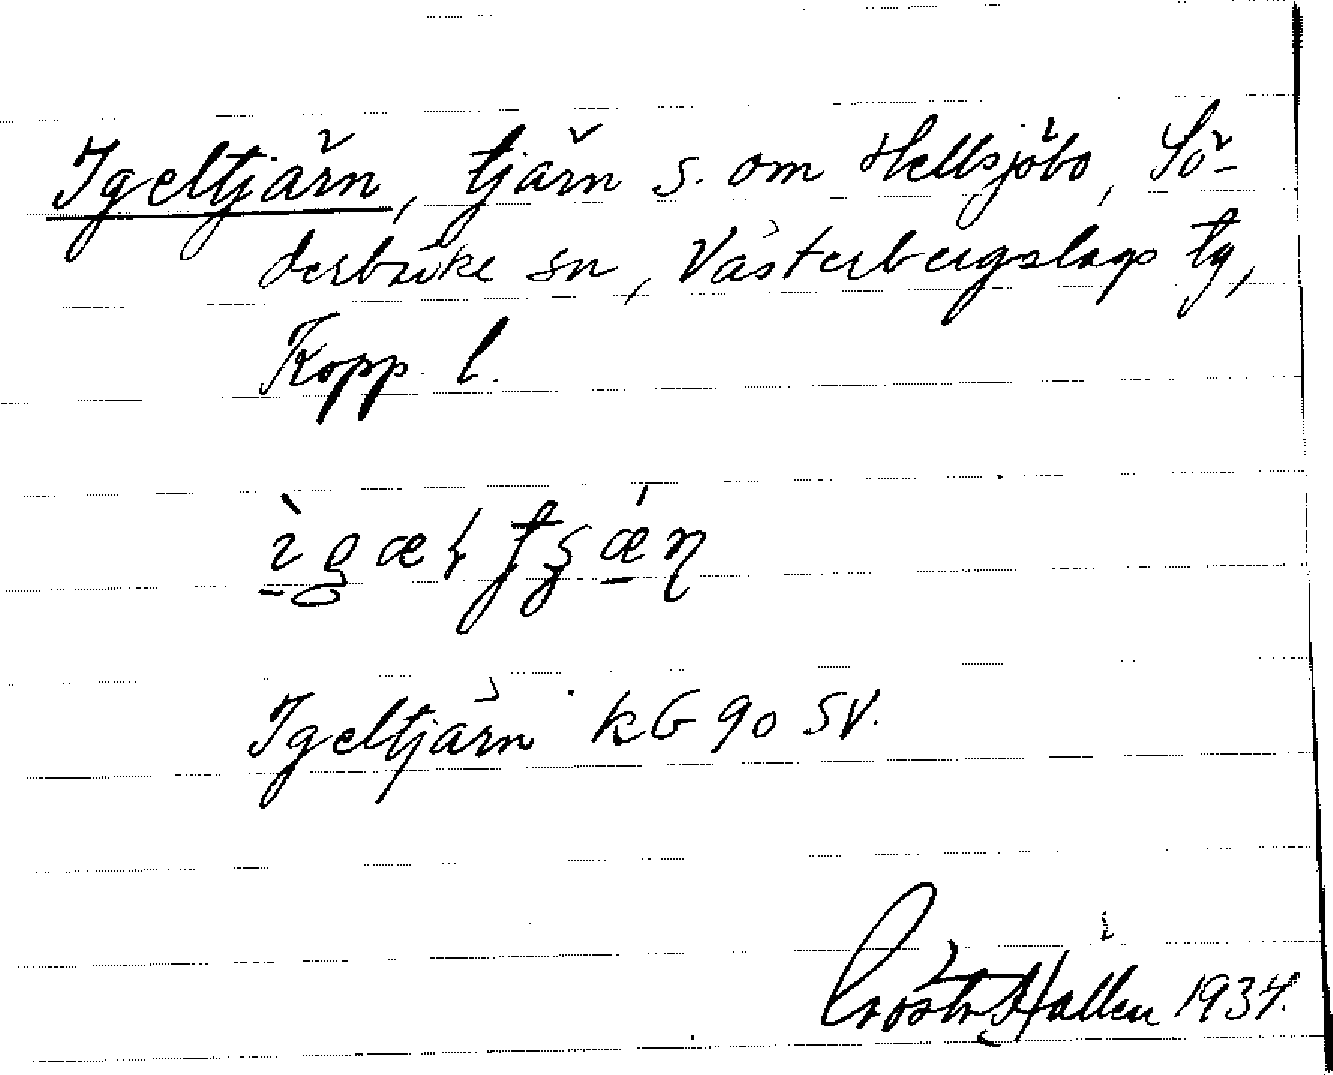 Igeltjärn, tjärn s. om Hellsjöbo, Sö-
derbärke sn, Västerbergslags tg,
Kopp. l.
Igeltjärn kG 90 SV.
Hallén 1934.